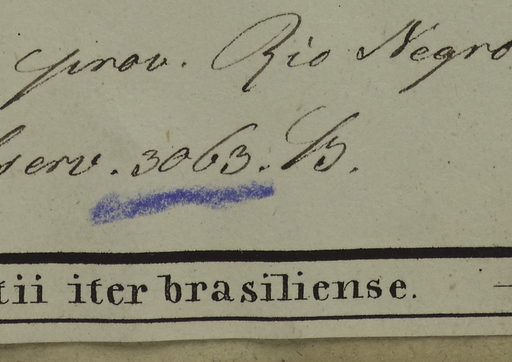 prov. Rio Negro
serv. 3063. B.
tii iter brasiliense.